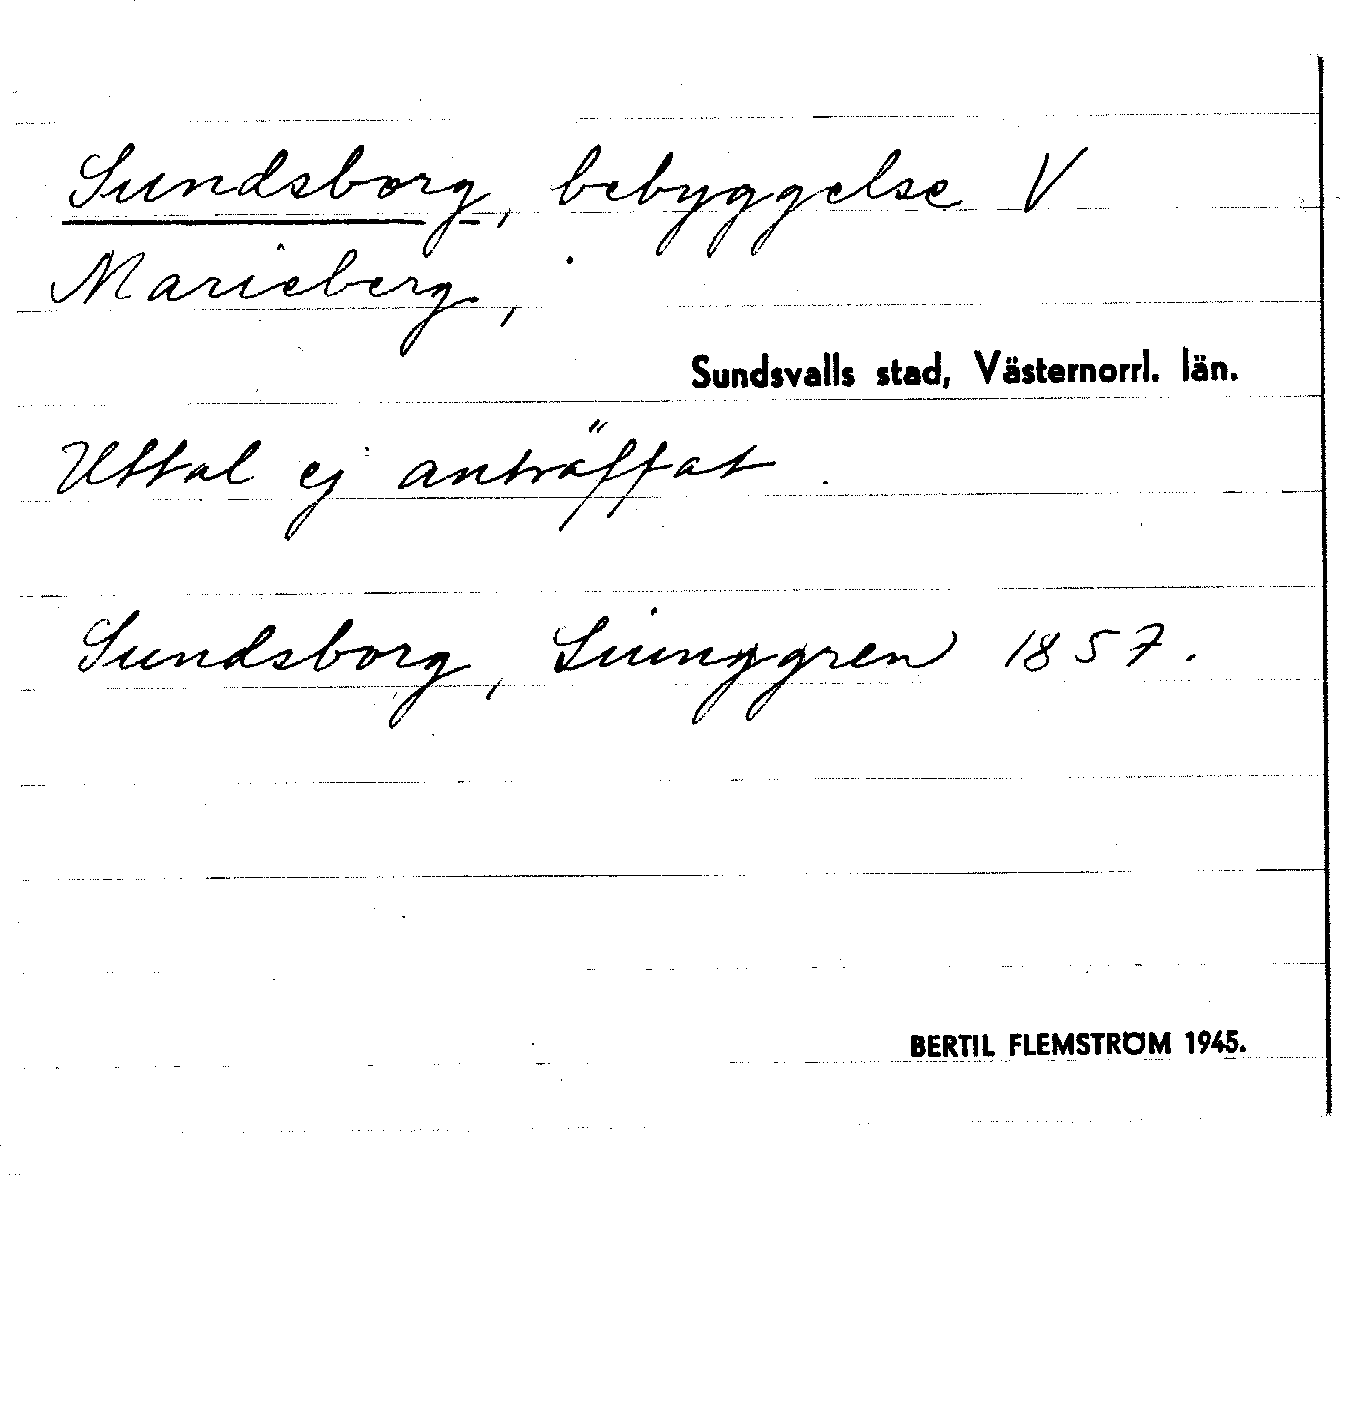 Sundsborg, bebyggelse V
Marieberg,
Sundsvalls stad, Västernorrl. län.
Uttal ej anträffat
Sundsborg, Liunggren 1857.
BERTIL FLEMSTRÖM 1945.